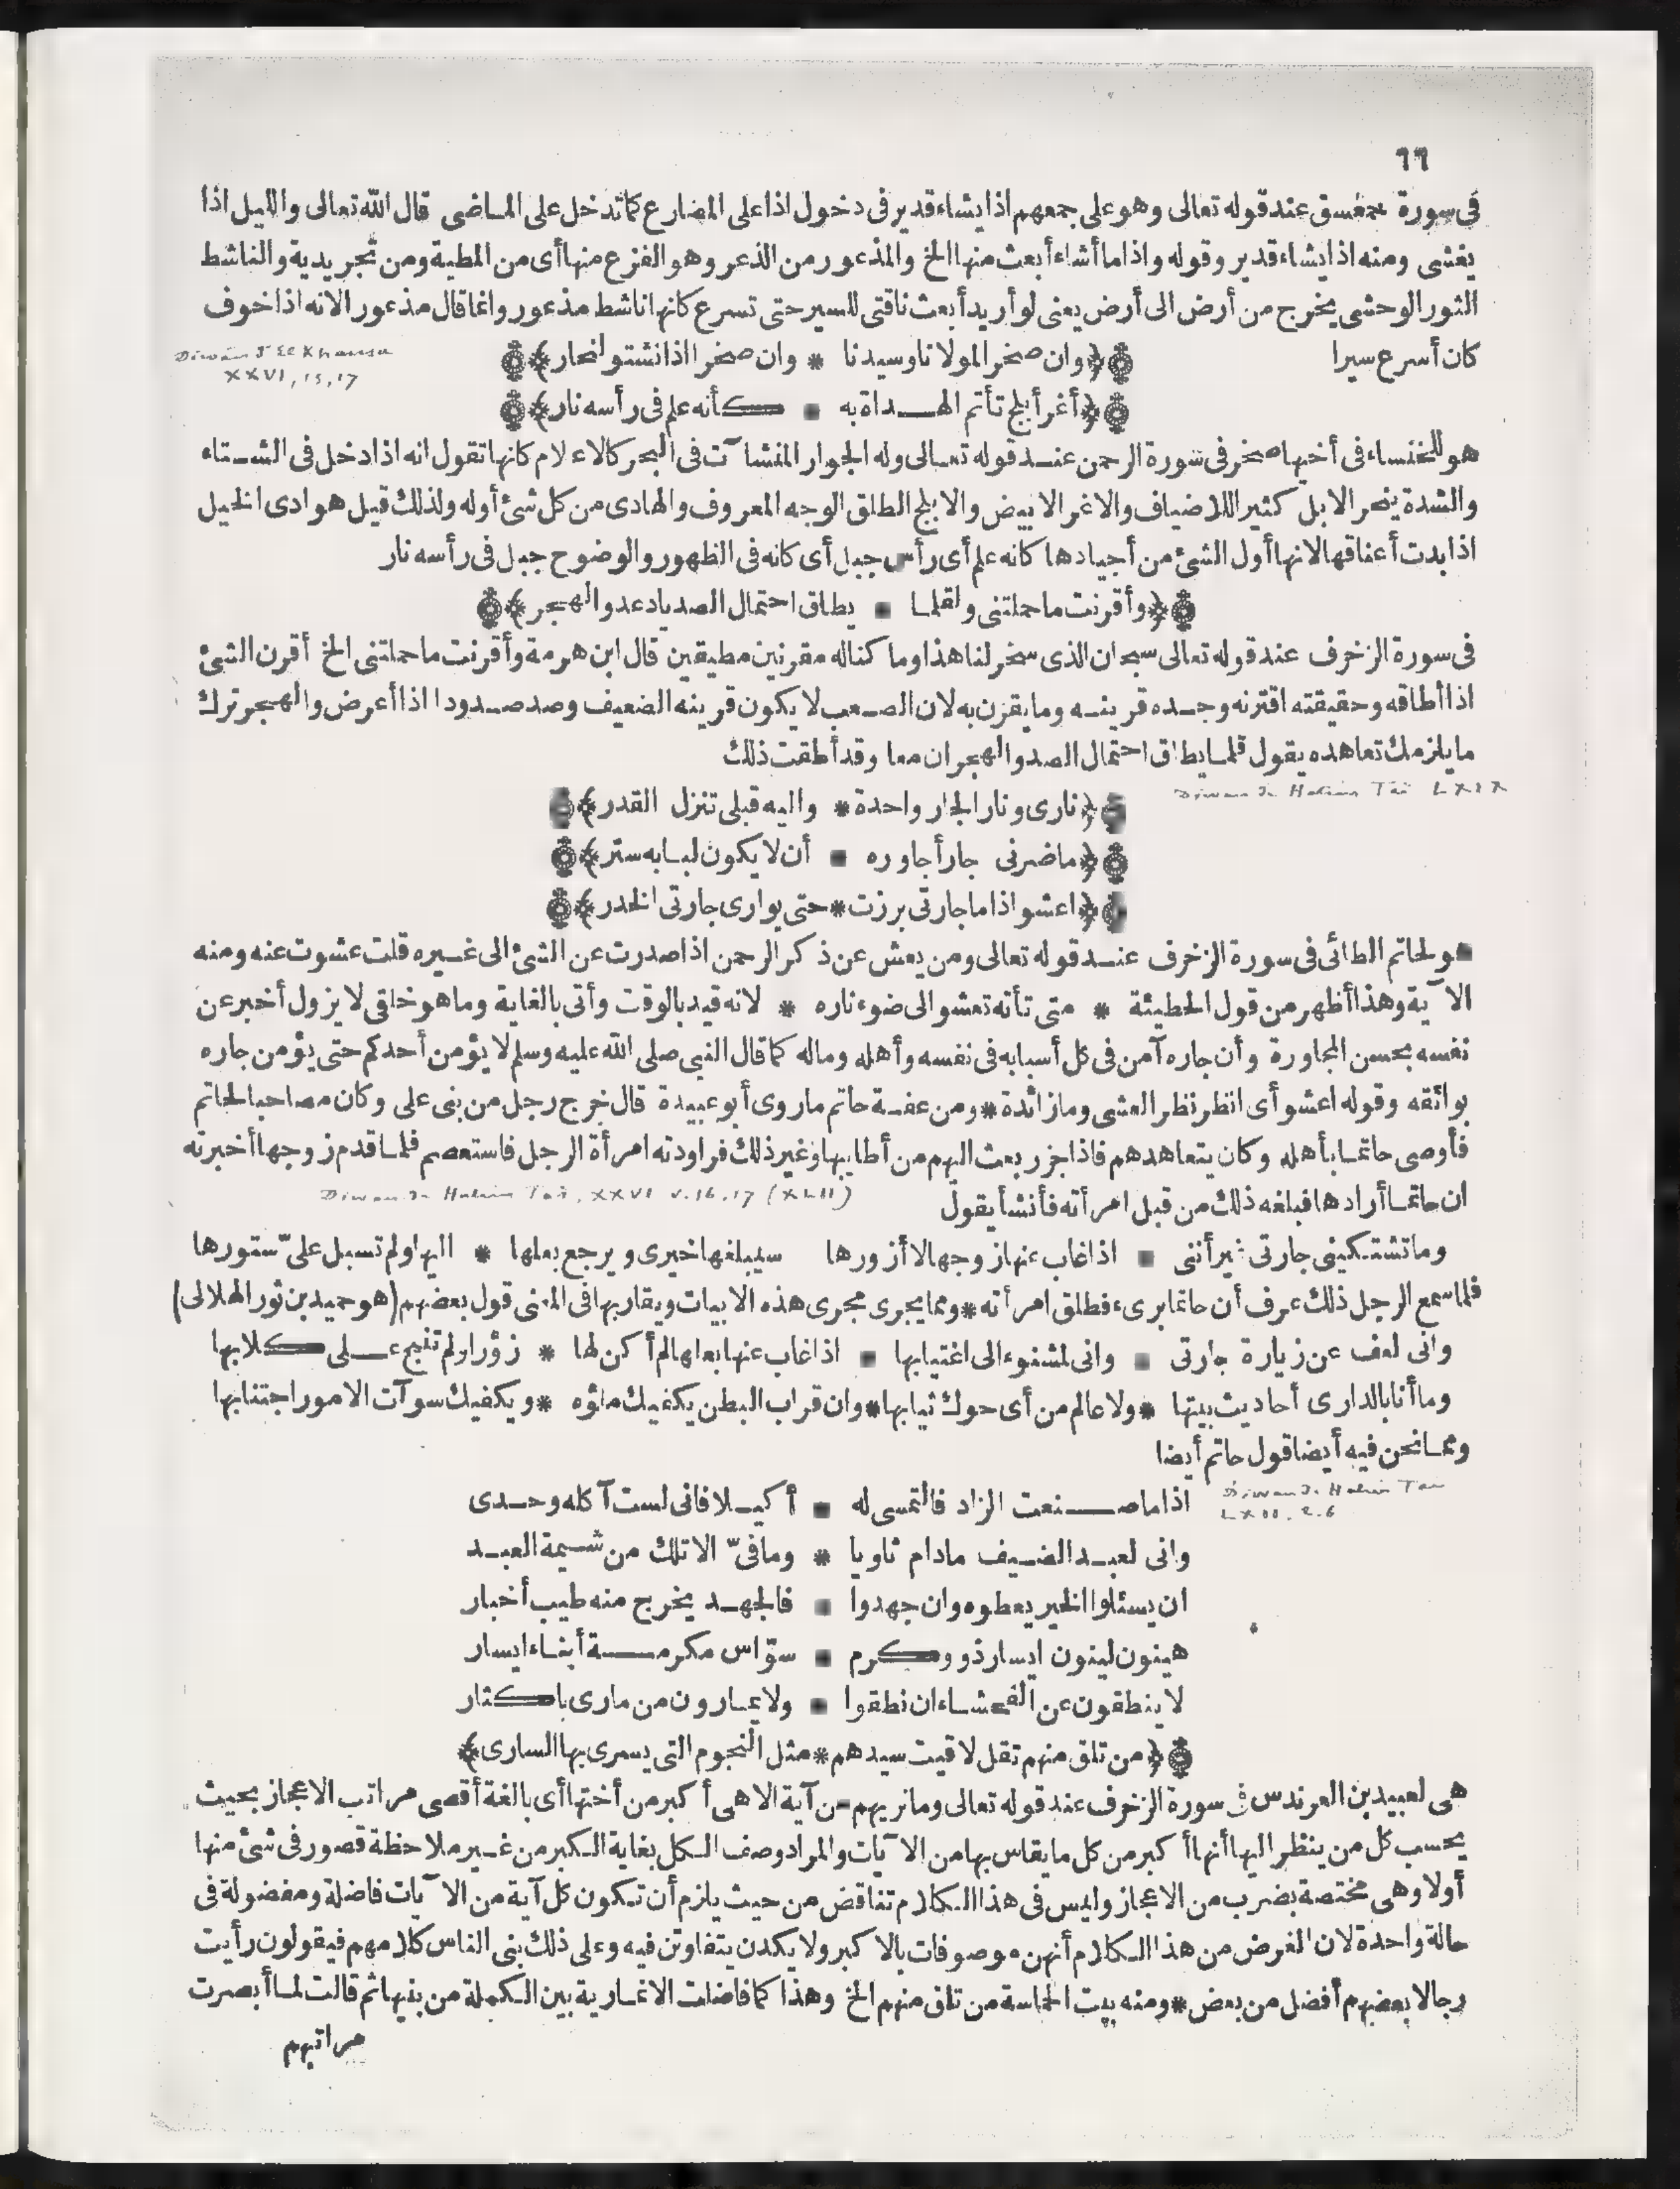 ٦٦
فى سورة حمعسق عند قوله تعالى وهو على جمعهم اذا يشاء قدير فى دخول اذا على المضارع كما تدخل على الماضى قال الله تعالى والليل اذا
يغشى ومنه اذا يشاء قدير وقوله واذا ما أشاء أبعث منها الخ والمذعور من الذعر وهو الفزع منها أى من المطية ومن تجريدية والناشط
الثور الوحشى يخرج من أرض الى أرض يعنى لو أريد أبعث ناقتى للسير حتى تسرع كانها ناشط مذعور وانما قال مذعور الانه اذا خوف
كان أسرع سيرا
Diwan d'El Khansa
XXVI, 15, 17
﴿وان صخرا لمولانا وسيدنا * وان صخرا اذا نشتو لنحار﴾
﴿أغر أبلج تأتم الهداة به * كأنه علم فى رأسه نار﴾
هو للخنساء فى أخيها صخر فى سورة الرحمن عند قوله تعالى وله الجوار المنشآت فى البحر كالاعلام كانها تقول انه اذا دخل فى الشتاء
والشدة ينحر الابل كثيرا للاضياف والاغر الابيض والابلج الطلق الوجه المعروف والهادى من كل شئ أوله ولذلك قيل هوادى الخيل
اذا بدت أعناقها لانها أول الشئ من أجيادها كانه علم أى رأس جبل أى كانه فى الظهور والوضوح جبل فى رأسه نار
﴿وأقرنت ما حملتنى ولقلما * يطاق احتمال الصد يادعد والهجر﴾
فى سورة الزخرف عند قوله تعالى سبحان الذى سخر لنا هذا وما كنا له مقرنين مطيقين قال ابن هرمة وأقرنت ما حملتنى الخ أقرن الشئ
اذا أطاقه وحقيقته اقترنه وجده قرينه وما يقرن به لان الصعب لا يكون قرينه الضعيف وصد صدودا اذا أعرض والهجر ترك
ما يلزمك تعاهده يقول قلما يطاق احتمال الصد والهجران معا وقد أطقت ذلك
Diwan de Hatim Tai LXIX
﴿نارى ونار الجار واحدة * واليه قبلى تنزل القدر﴾
﴿ما ضرنى جار أجاوره * أن لا يكون لبابه ستر﴾
﴿اعشو اذا ما جارتى برزت * حتى يوارى جارتى الخدر﴾
هو لحاتم الطائى فى سورة الزخرف عند قوله تعالى ومن يعش عن ذكر الرحمن اذا صدرت عن الشئ الى غيره قلت عشوت عنه ومنه
الآية وهذا أظهر من قول الحطيئة * متى تأته تعشو الى ضوء ناره * لانه قيد بالوقت وأتى بالغاية وما هو خلقى لا يزول أخبر عن
نفسه بحسن المجاورة وأن جاره آمن فى كل أسبابه فى نفسه وأهله وماله كما قال النبى صلى الله عليه وسلم لا يؤمن أحدكم حتى يؤمن جاره
بوائقه وقوله اعشو أى انظر نظر العشى وما زائدة * ومن عفة حاتم ما روى أبو عبيدة قال خرج رجل من بنى على وكان مصاحبا لحاتم
فأوصى حاتما بأهله وكان يتعاهدهم فاذا جزر بعث اليهم من أطايبها وغير ذلك فراودته امرأة الرجل فاستعصم فلما قدم زوجها أخبرته
ان حاتما أرادها فبلغه ذلك من قبل امرأته فأنشأ يقول
Diwan de Hatim Tai, XXVI v. 16, 17 (XLII)
وما تشتكينى جارتى غير أننى * اذا غاب عنها زوجها لا أزورها سيبلغها خيرى ويرجع بعلها * اليها ولم تسبل علىّ ستورها
فلما سمع الرجل ذلك عرف أن حاتما برىء فطلق امرأته * ومما يجرى مجرى هذه الابيات ويقاربها فى المعنى قول بعضهم (هو حميد بن ثور الهلالى)
وانى لعف عن زيارة جارتى * وانى لمشنوء الى اغتيابها * اذا غاب عنها بعلها لم أكن لها * زؤرا ولم تنبح على كلابها
وما أنا بالدارى أحاديث بيتها * ولا عالم من أى حوك ثيابها * وان قراب البطن يكفيك ملؤه * ويكفيك سوآت الامور اجتنابها
ومما نحن فيه أيضا قول حاتم أيضا
Diwan de Hatim Tai
LXII. 2. 6
اذا ما صنعت الزاد فالتمسى له * أكيلا فانى لست آكله وحدى
وانى لعبد الضيف مادام ثاويا * وما فىّ الا تلك من شيمة العبد
ان يسئلوا الخير يعطوه وان جهدوا * فالجهد يخرج منه طيب أخبار
هينون لينون ايسار ذوو كرم * سوّاس مكرمة أبناء ايسار
لا ينطقون عن الفحشاء ان نطقوا * ولا يمارون من مارى باكثار
﴿من تلق منهم تقل لاقيت سيدهم * مثل النجوم التى يسرى بها السارى﴾
هى لعبيد بن العرندس فى سورة الزخرف عند قوله تعالى وما نريهم من آية الا هى أكبر من أختها أى بالغة أقصى مراتب الاعجاز بحيث
يحسب كل من ينظر اليها أنها أكبر من كل ما يقاس بها من الآيات والمراد وصف الكل بغاية الكبر من غير ملاحظة قصور فى شئ منها
أولا وهى مختصة بضرب من الاعجاز وليس فى هذا الكلام تناقض من حيث يلزم أن تكون كل آية من الآيات فاضلة ومفضولة فى
حالة واحدة لان الغرض من هذا الكلام أنهن موصوفات بالاكبر ولا يكدن يتفاوتن فيه وعلى ذلك بنى الناس كلامهم فيقولون رأيت
رجالا بعضهم أفضل من بعض * ومنه بيت الحماسة من تلق منهم الخ وهذا كما فاضلت الانمارية بين الكملة من بنيها ثم قالت لما أبصرت
مراتبهم